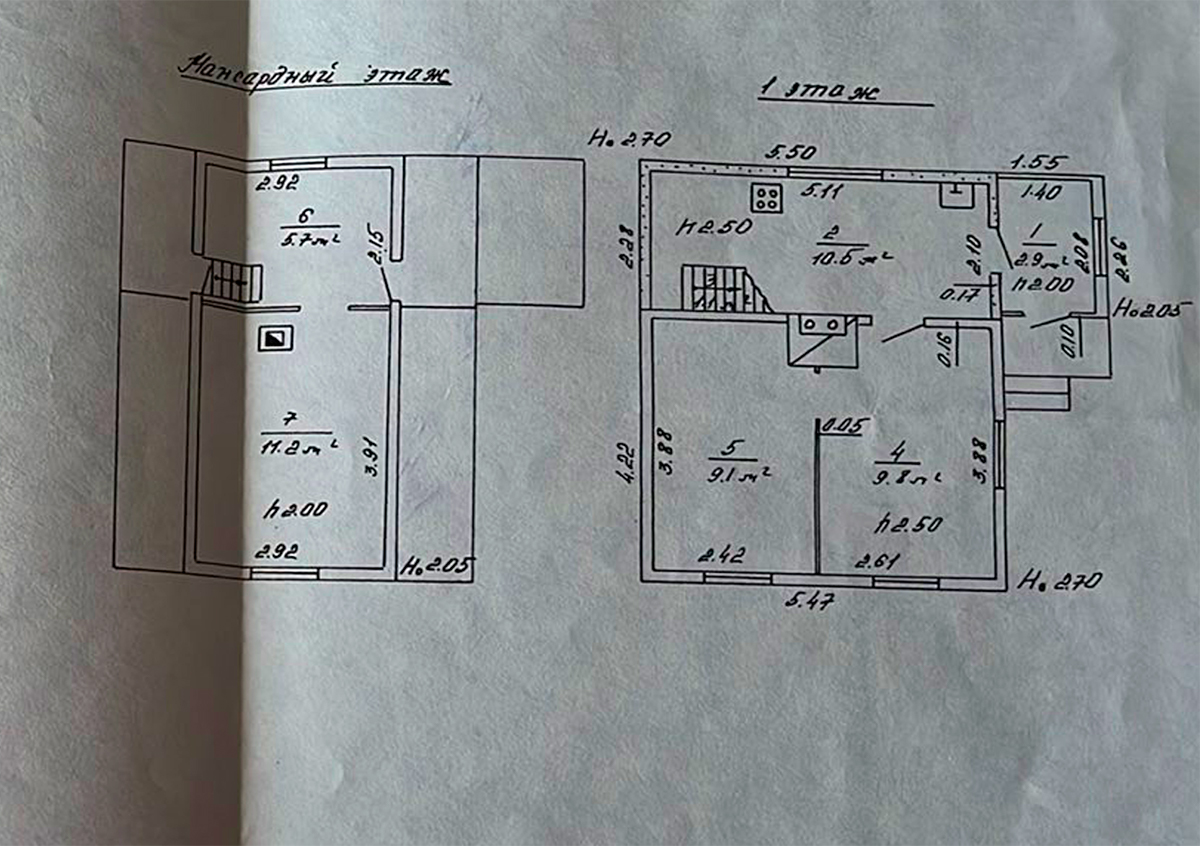 Мансардный этаж
2.92
6
5.7 м²
2.15
7
11.2 м²
3.91
h 2.00
2.92
Н. 2.05
1 этаж
Н. 2.70
5.50
1.55
5.11
1.40
h 2.50
2
10.5 м²
2.28
2.10
1
2.9 м²
h 2.00
2.08
2.26
0.17
Н. 2.05
0.16
0.10
0.05
4.22
3.88
5
9.1 м²
4
9.8 м²
h 2.50
3.88
2.42
2.61
5.47
Н. 2.70